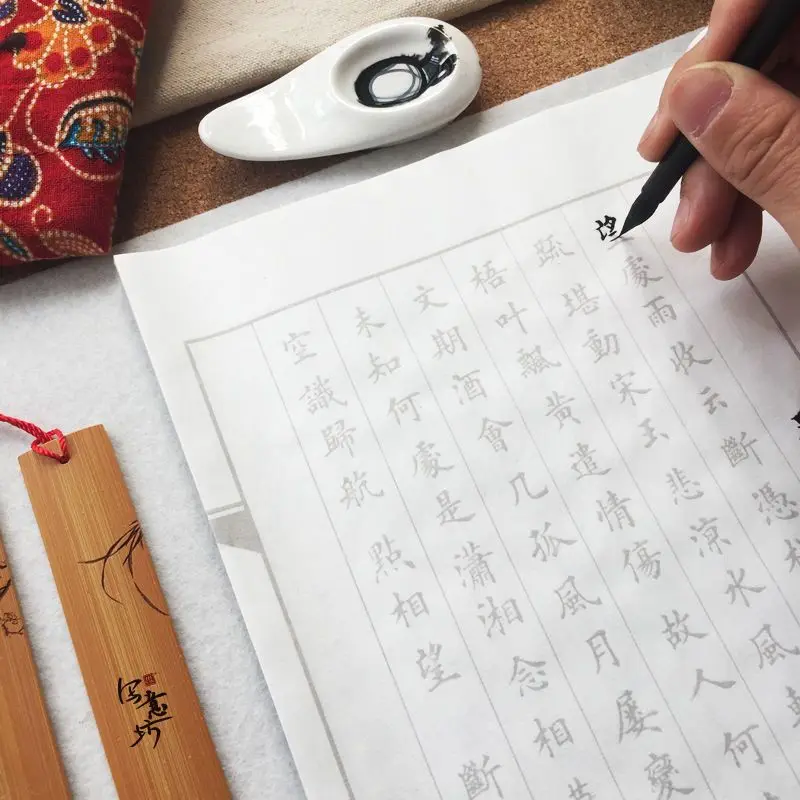 望處雨收云斷憑
疏堪動宋玉悲涼水風
梧叶飄黃遣情傷故人何
文期酒會几孤風月屢變
未知何處是瀟湘念相
空識歸航點相望斷
写意坊